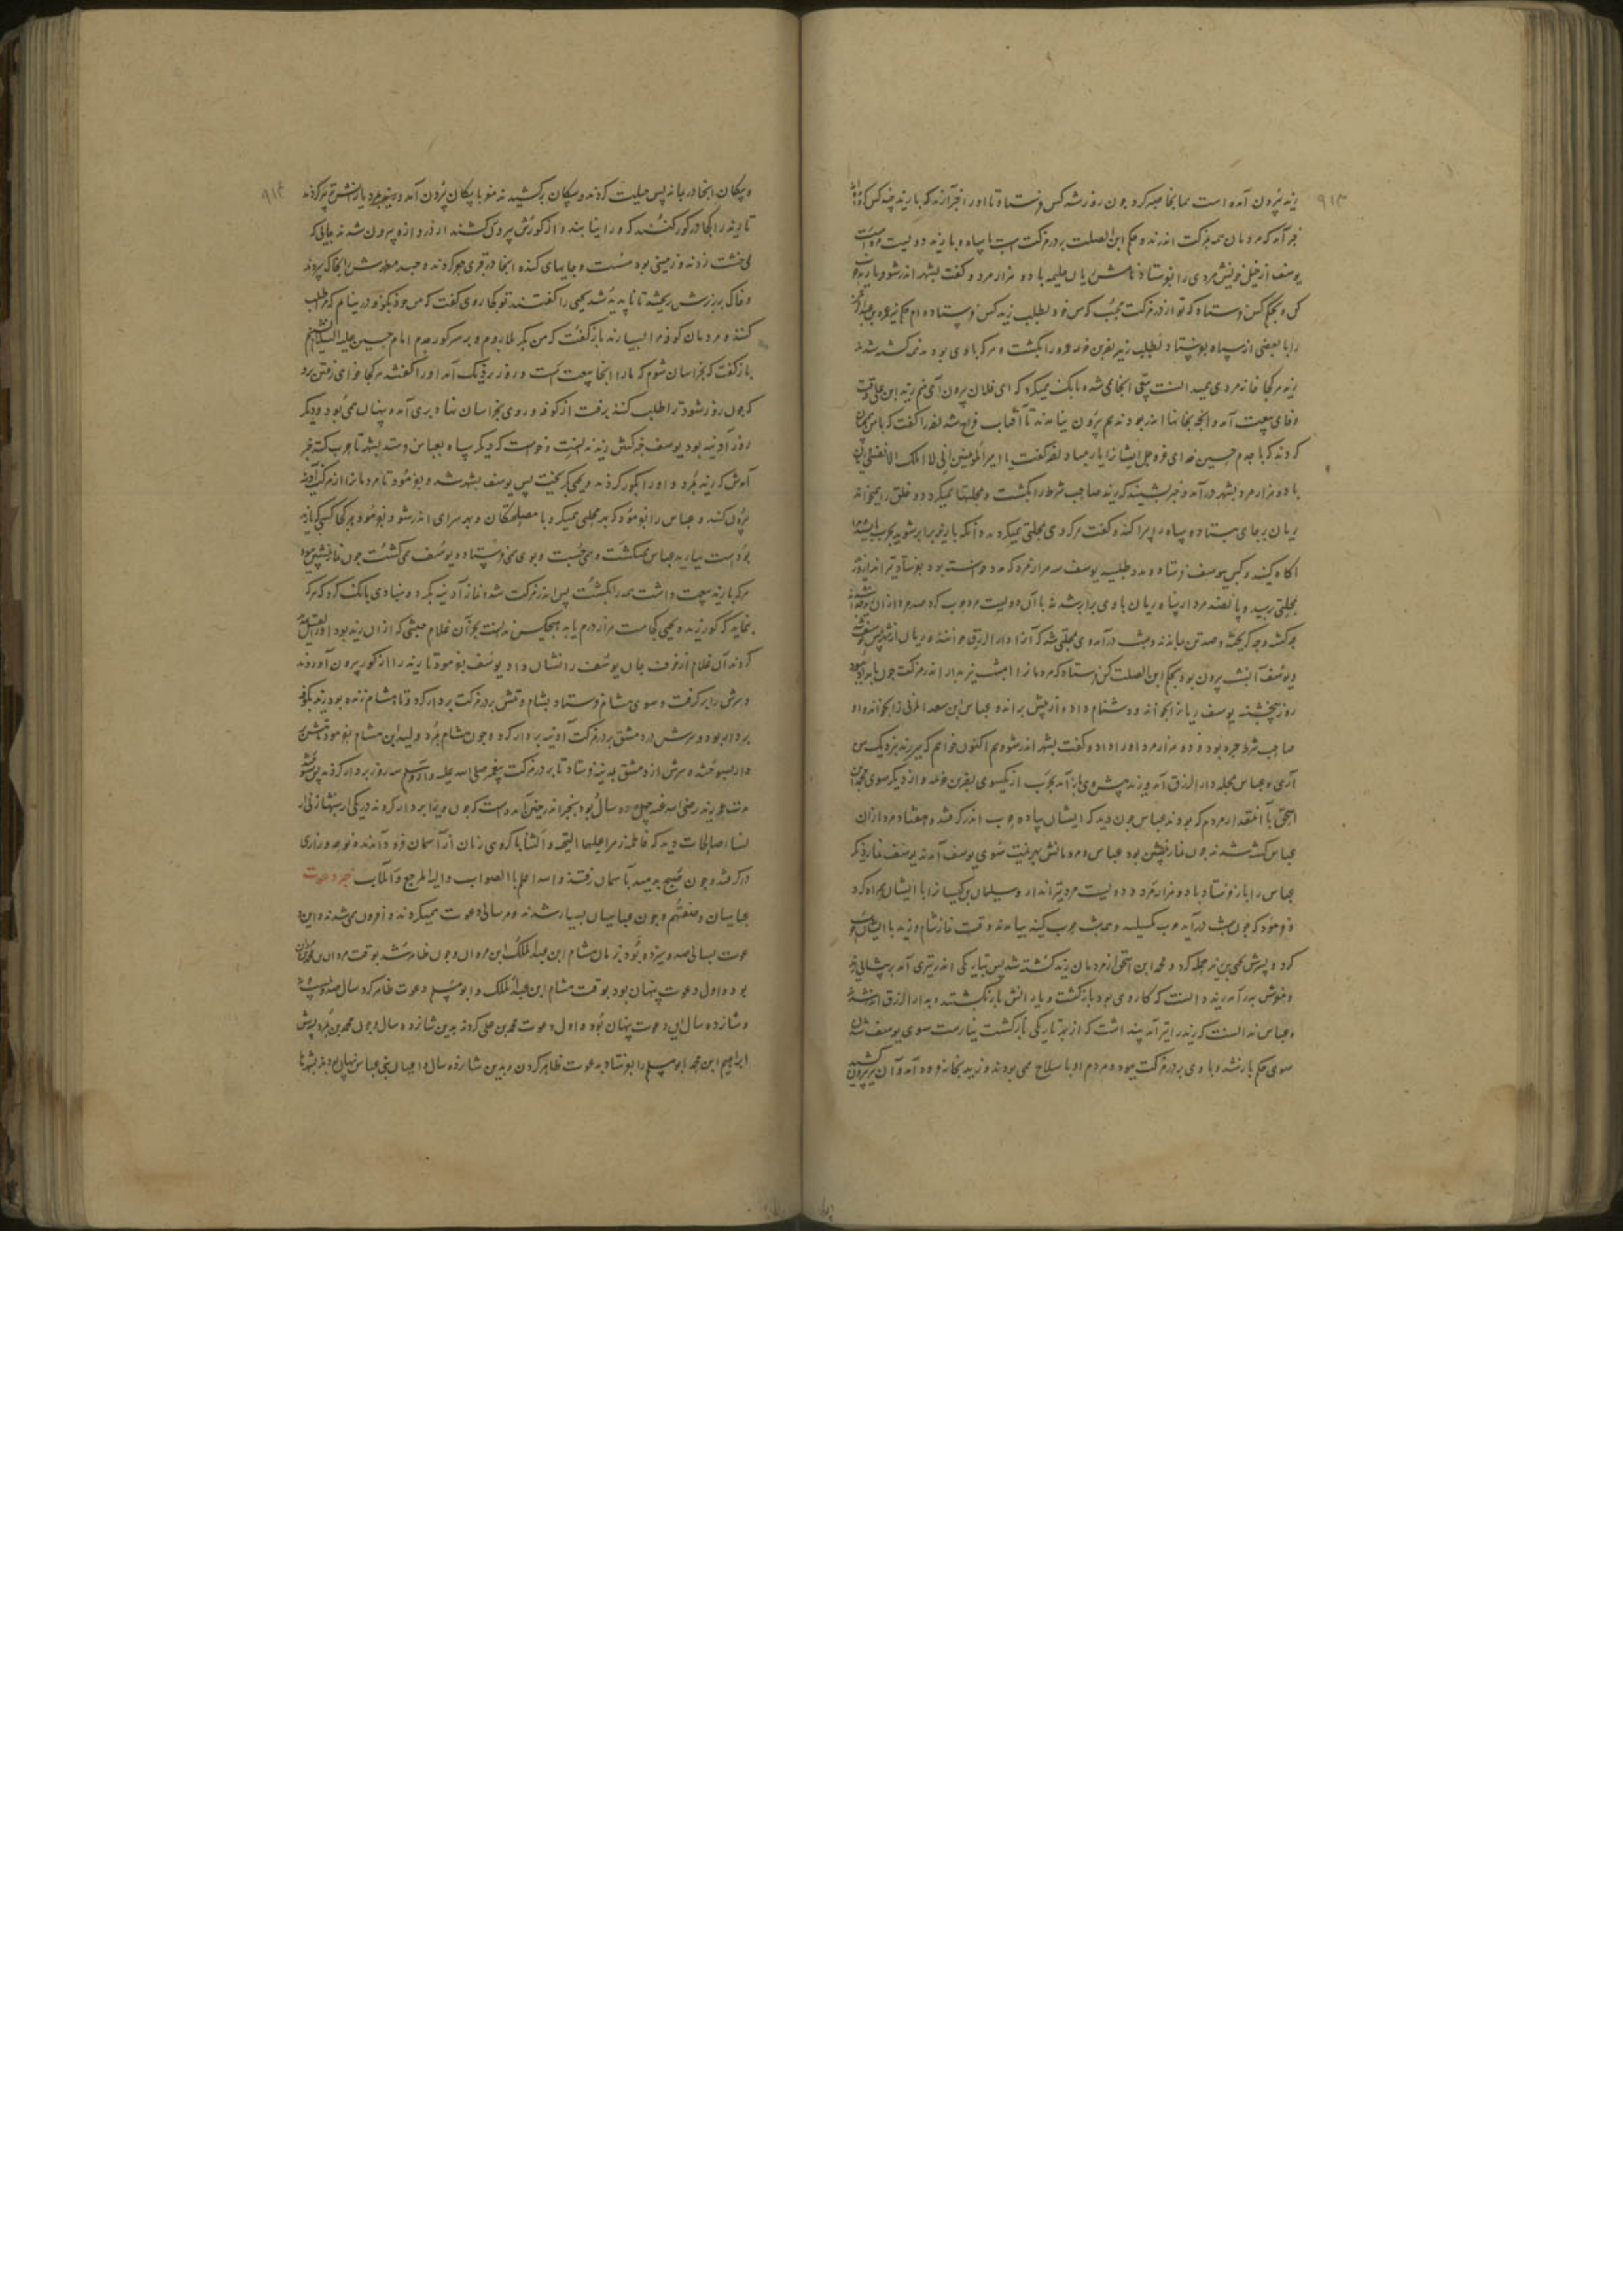 ۹۱۳
زید بیرون آمده است بما بنجا صبر کرد چون روز شد کس فرستاد تا او را خبر آرند که با زید چند کس
خبر آمد که مردمان همه بمزکت اندرند و حکم ابن الصلت بر در مزکت است با سپاه و با زید دویست مرد است
یوسف از خیل خویش مردی را بفرستاد نامش ریان سلیمه با دو هزار مرد و گفت بشهر اندر شو و با زید
کن و بحکم کس فرستاد که تو از در مزکت مجنب که من خود بطلب زید کس فرستاده ام
را با بعضی از سپاه بفرستاد بطلب زید نصر بن عمرو را بکشت و هر که با وی بودند کشته شدند
زید هر کجا خانه مردی میدانست بدر آنجا می شد و بانک میکرد که ای فلان بیرون آی منم زید ابن علی وقت
وفای بیعت آمد و آنچه بخانها اندر بودند هم بیرون نیامدند تا آفتاب فراخ شد نصر را گفت که با من همان
کردند که با جدم حسین خدای عز و جل ایشانرا یار مباد نصر گفت یا امیر المؤمنین انی لا املک الا نفسی
با دو هزار مرد بشهر درآمد و خبر بشنید که زید صاحب شرط را بکشت و محلتها میکردد و خلق را همیخواند
ریان بر جای بیستاد و سپاه را پراکند و گفت هر که وی بمحلتی میکردد و آنکه با زید برابر شوید بحرب
آگاه کنید و کس بیوسف فرستاد و مدد طلبید یوسف سه هزار مرد که مدد خواسته بود بفرستاد تیرانداز و زید
بمحلتی رسید و پانصد مرد از سپاه ریان با وی برابر شدند با آن دویست مرد حرب کرد صد مرد از آن
چه کشته و چه گریخته و صد تن بماندند و شب درآمد وی بمحلتی شد که آنرا دار الرزق خوانند و ریان از شهر
و یوسف آن شب بیرون بود بحکم ابن الصلت کس فرستاد که مردمانرا امشب نیز بدار اندر مزکت چون بامداد بود
روز پنجشنبه یوسف ریانرا بخواند و دشنام داد و از پیش براند و عباس ابن سعد المزنی را بخواند و او
صاحب شرط حیره بود و دو هزار مرد او را داد و گفت بشهر اندر شو و هم اکنون خواهم که سر زید نزدیک من
آری و عباس بمحله دار الرزق آمد و زید پیش وی باز آمد بحرب از یکسوی نصر بن خزیمه و از دیگر سوی محمد ابن
اسحق با آن مقدار مردم که بودند عباس چون دید که ایشان پیاده حرب اندر گرفتند و هفتاد مرد از آن
عباس کشته شدند چون نماز پیشین بود عباس و مردمانش بهزیمت سوی یوسف آمدند یوسف نماز دیگر
عباس را باز فرستاد با دو هزار مرد و دویست مرد تیرانداز و سلیمان بن کیسانرا با ایشان همراه کرد
و فرمود که چون شب درآید حرب مگسلید و همه شب حرب کنید بیامدند وقت نماز شام و زید با ایشان
کرد و پسرش یحیی بن زید حمله کرد و محمد ابن اسحق از مردمان زید کشته شد پس بتاریکی اندر تیری آمد بر پیشانی زید
و خونش بدر آمد زید دانست که کار وی بود بازگشت و یارانش بازگشتند و بدار الرزق اندر شدند
و عباس ندانست که زید را تیر آمد پنداشت که از بهر تاریکی بازگشت نیارست سوی یوسف شدن
سوی حکم باز شد و با وی بر در مزکت ببود و مردم او با سلاح همی بودند و زید بخانه فرود آمد و آن تیر بیرون کشید
۹۱۴
و پیکان آنجا در بماند پس حیلت کردند و پیکان برکشیدند مغز با پیکان بیرون آمد و زید بمرد یارانش تدبیر کردند
تا زید را کجا در گور کنند که ورا نیابند و از گورش بیرون نکشند از در دروازه بیرون شدند بجائی که
می خشت زدند و زمینی بود سست و جایهای کنده آنجا در قبری حفر کردند و جسد مطهرش آنجا که بردند
و خاک بر زبرش ریختند تا ناپدید شد یحیی را گفتند تو کجا روی گفت که من خود بکوفه در نیام که مرا طلب
کنند و مردمان کوفه مرا بسپارند باز گفت که من بکربلا روم و بر سر گور جدم امام حسین علیه السلام
باز گفت که بخراسان شوم که ما را آنجا بیعت است و روز نزدیک آمد او را گفتند هر کجا خواهی رفتن برو
که چون روز شود ترا طلب کنند برفت از کوفه و روی بخراسان نهاد بدیهی آمد و پنهان همی بود و دیگر
روز آدینه بود یوسف خبر کشتن زید ندانست و خواست که دیگر سپاه بعباس فرستد بشهر تا حرب کند خبر
آمدش که زید بمرد و او را بگور کردند و یحیی بگریخت پس یوسف بشهر شد و بفرمود تا مردمانرا از مزکت آدینه
بیرون کنند و عباس را بفرمود که بهر محلتی همیگرد با مصلحتگان و بهر سرای اندر شو و بفرمود هر کجا کسی که با زید
بوده است بیارید عباس همیگشت و همی جست و بوی همی فرستاد و یوسف همی کشت چون نماز پیشین بود
هر که با زید بیعت داشت همه را بکشت پس اندر مزکت شد و نماز آدینه بکرد و منادی بانک کرد که هر که
بنماید که گور زید و یحیی کجاست هزار درم یابد هیچکس ندانست بجز آن غلام حبشی که از آن زید بود
کردند آن غلام از خوف جان یوسف را نشان داد یوسف بفرمود تا زید را از گور بیرون آوردند
و سرش را برگرفت و سوی هشام فرستاد بشام و تنش بر در مزکت بر دار کرد و تا هشام زنده بود زید بکوفه
بر دار بود و سرش در دمشق بر در مزکت آدینه بر دار کرد و چون هشام بمرد ولید ابن هشام بفرمود تا تنش
دار بسوختند و سرش از دمشق بمدینه فرستاد تا بر در مزکت پیغمبر صلی الله علیه و آله و سلم سه روز بر دار کردند پس
مدت عمر زید رضی الله عنه چهل و دو سال بود بخبر اندر چنین آمده است که چون ویرا بر دار کردند در یکی از شبها زنی از
نساء صالحات دید که فاطمه زهرا علیها التحیة و الثنا با گروهی زنان از آسمان فرود آمدند و نوحه و زاری
درگرفتند و چون صبح بدمید بآسمان رفتند و الله اعلم بالصواب و الیه المرجع و المآب خبر دعوت
عباسیان و صفتهم و چون عباسیان بسیار شدند و هر سالی دعوت همیکردند و افزون همی شدند و این
دعوت بسالی صد و سیزده بود بزمان هشام ابن عبد الملک ابن مروان و چون ظاهر شد بوقت مروان بن محمد
بود و اول دعوت پنهان بود بوقت هشام ابن عبد الملک و ابو مسلم دعوت ظاهر کرد سال صد و بیست و نه
و شانزده سال این دعوت پنهان بود و اول دعوت محمد بن علی کردند بدین شانزده سال و چون محمد بن علی بمرد پسرش
ابراهیم ابن محمد ابو مسلم را بفرستاد بدعوت ظاهر کردن و بدین شانزده سال داعیان بنی عباس پنهان بودند بشهرها